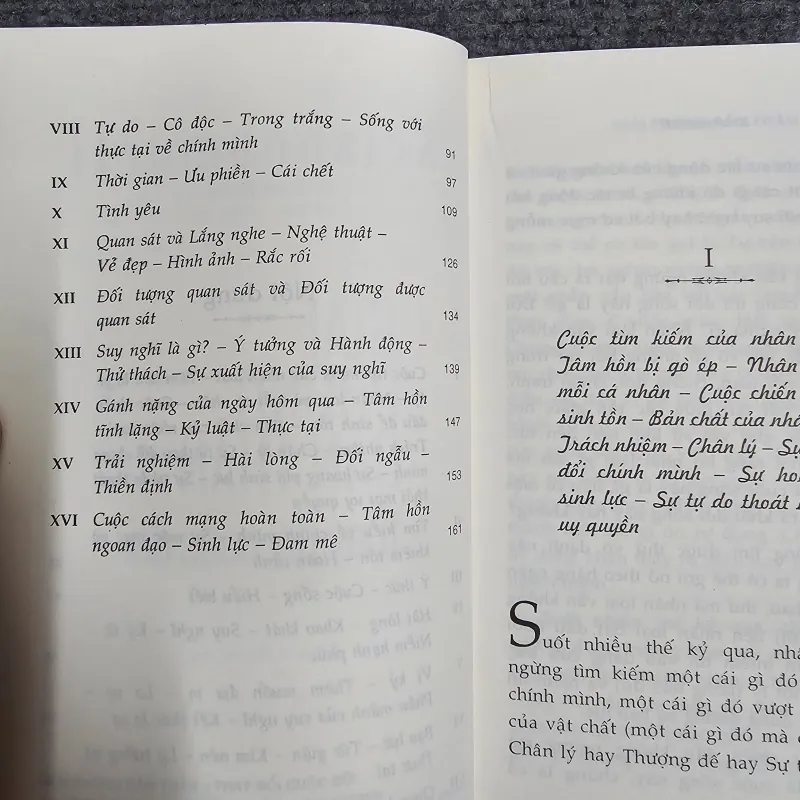 VIII Tự do – Cô độc – Trong trắng – Sống với
thực tại về chính mình 91
IX Thời gian – Ưu phiền – Cái chết 97
X Tình yêu 109
XI Quan sát và Lắng nghe – Nghệ thuật –
Vẻ đẹp – Hình ảnh – Rắc rối 126
XII Đối tượng quan sát và Đối tượng được
quan sát 134
XIII Suy nghĩ là gì? – Ý tưởng và Hành động –
Thử thách – Sự xuất hiện của suy nghĩ 139
XIV Gánh nặng của ngày hôm qua – Tâm hồn
tĩnh lặng – Kỷ luật – Thực tại 147
XV Trải nghiệm – Hài lòng – Đối ngẫu –
Thiền định 153
XVI Cuộc cách mạng hoàn toàn – Tâm hồn
ngoan đạo – Sinh lực – Đam mê 161
I
Cuộc tìm kiếm của nhân
Tâm hồn bị gò ép – Nhân
mỗi cá nhân – Cuộc chiến
sinh tồn – Bản chất của
Trách nhiệm – Chân lý –
đổi chính mình – Sự
sinh lực – Sự tự do thoát
uy quyền
Suốt nhiều thế kỷ qua,
ngừng tìm kiếm một cái gì đó
chính mình, một cái gì đó vượt
của vật chất (một cái gì đó mà
Chân lý hay Thượng đế hay Sự